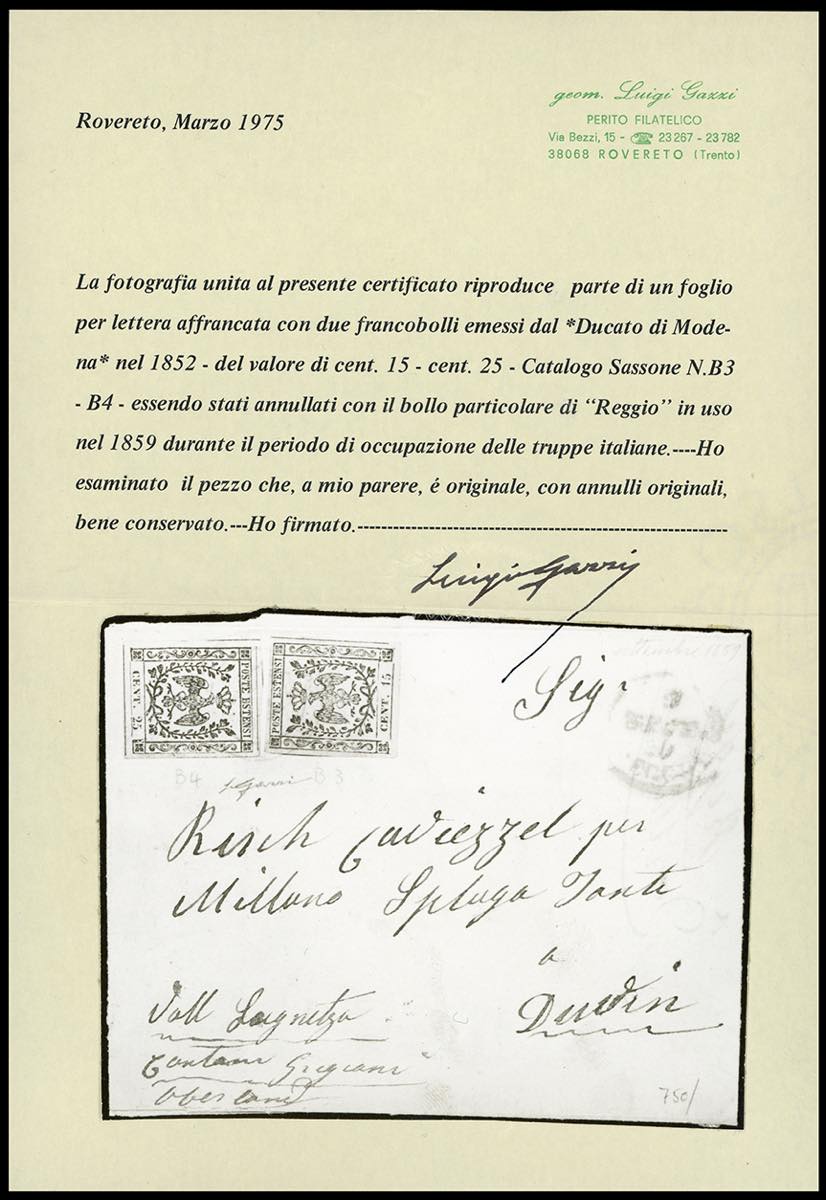 geom. Luigi Gazzi
PERITO FILATELICO
Via Bezzi, 15 - ☎ 23267 - 23782
38068 ROVERETO (Trento)
Rovereto, Marzo 1975
La fotografia unita al presente certificato riproduce parte di un foglio
per lettera affrancata con due francobolli emessi dal *Ducato di Mode-
na* nel 1852 - del valore di cent. 15 - cent. 25 - Catalogo Sassone N.B3
- B4 - essendo stati annullati con il bollo particolare di “Reggio” in uso
nel 1859 durante il periodo di occupazione delle truppe italiane.----Ho
esaminato il pezzo che, a mio parere, é originale, con annulli originali,
bene conservato.---Ho firmato.---------------------------------------------------------------
Luigi Gazzi
POSTE ESTENSI
CENT. 25.
POSTE ESTENSI
CENT. 15
B4 LGazzi B3
settembre 1859
Sigr
Risch Caviezzel per
Millano Spluga Tonti
a
Duvin
Vall Lugnetza
Cantone Grigioni
Oberland
750/